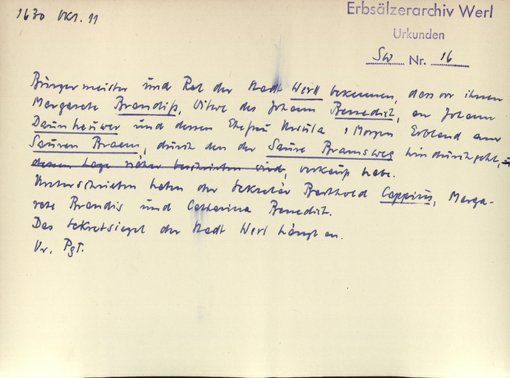 1630 Okt. 11
Erbsälzerarchiv Werl
Urkunden
Sw Nr. 16
Bürgermeister und Rat der Stadt Werl bekennen, dass vor ihnen
Margarete Brandiß, Witwe des Johann Benedict, an Johann
und dessen Ehefrau Ursula 1 Morgen Erbland am
Sauren Braem, durch den der Saure Bramsweg hindurchgeht,
deren Lage näher beschrieben wird, verkauft habe.
Unterschrieben haben der Sekretär Berthold Coppius, Marga-
rete Brandis und Catharina Benedict.
Das Sekretsiegel der Stadt Werl hängt an.
Or. Pgt.